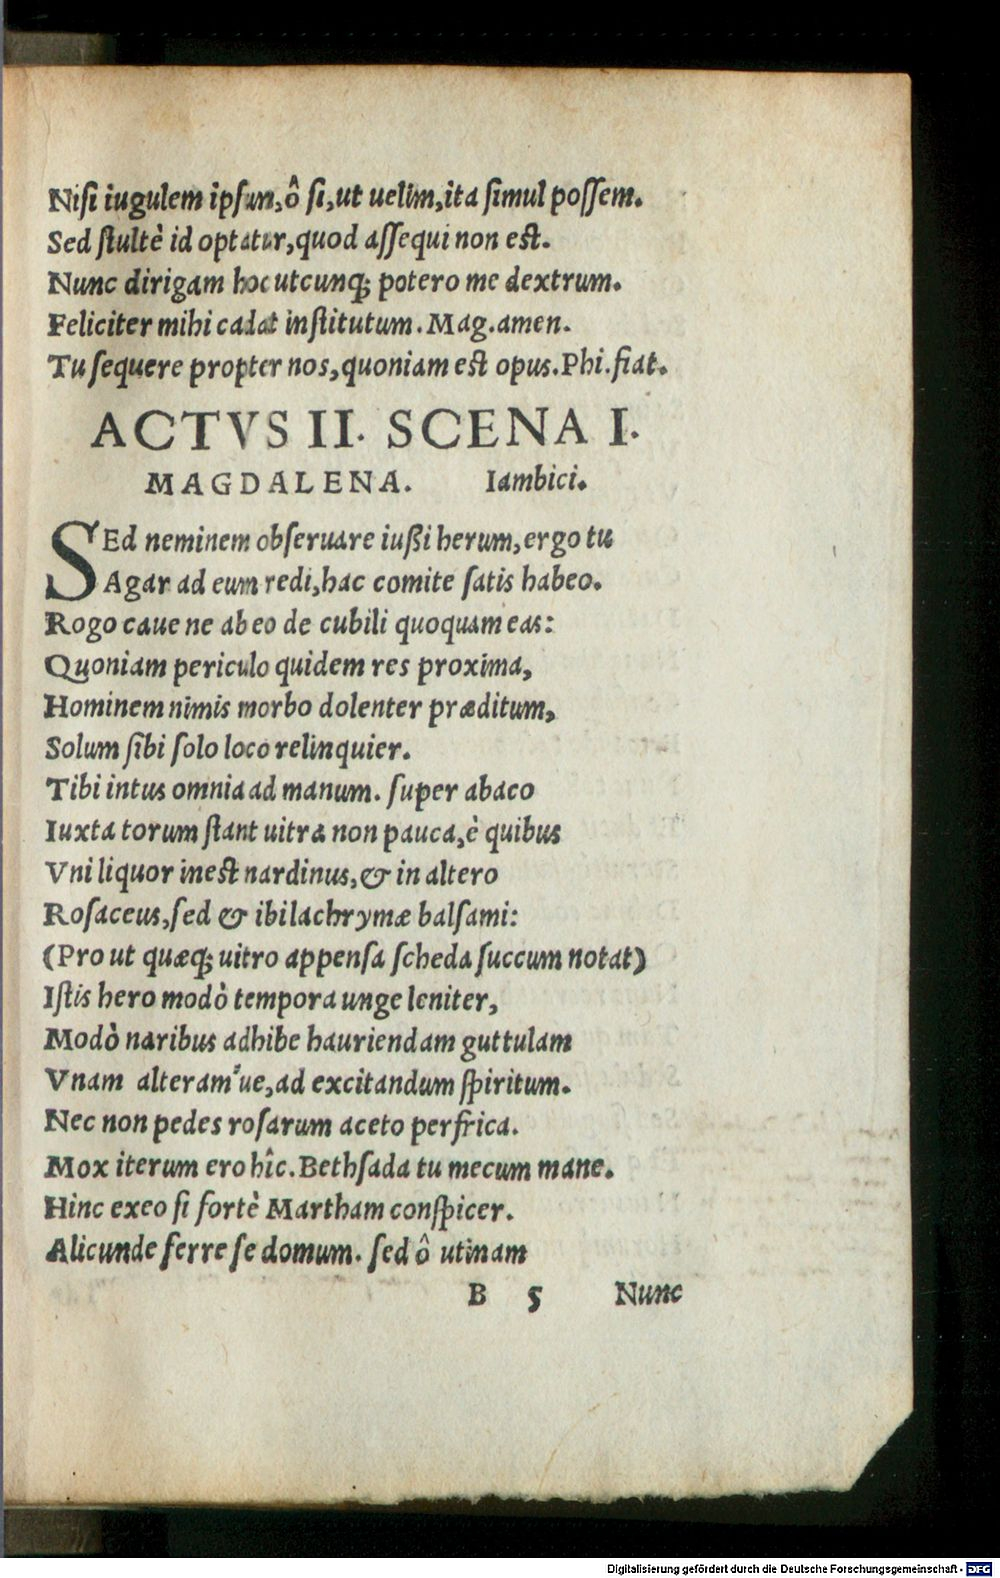 Niſi iugulem ipſum,ô ſi,ut uelim,ita ſimul poſſem.
Sed ſtultè id optatur,quod aſſequi non eſt.
Nunc dirigam hoc utcunq; potero me dextrum.
Feliciter mihi cadat inſtitutum. Mag. amen.
Tu ſequere propter nos,quoniam eſt opus. Phi. fiat.
ACTVS II. SCENA I.
MAGDALENA. Iambici.
SEd neminem obſeruare iußi herum,ergo tu
Agar ad eum redi,hac comite ſatis habeo.
Rogo caue ne ab eo de cubili quoquam eas:
Quoniam periculo quidem res proxima,
Hominem nimis morbo dolenter præditum,
Solum ſibi ſolo loco relinquier.
Tibi intus omnia ad manum. ſuper abaco
Iuxta torum ſtant uitra non pauca,è quibus
Vni liquor ineſt nardinus,& in altero
Roſaceus,ſed & ibi lachrymæ balſami:
(Pro ut quæq; uitro appenſa ſcheda ſuccum notat)
Iſtis hero modò tempora unge leniter,
Modò naribus adhibe hauriendam guttulam
Vnam alteram'ue,ad excitandum ſpiritum.
Nec non pedes roſarum aceto perfrica.
Mox iterum ero hîc. Bethſada tu mecum mane.
Hinc exeo ſi fortè Martham conſpicer.
Alicunde ferre ſe domum. ſed ô utinam
B 5 Nunc
Digitalisierung gefördert durch die Deutsche Forschungsgemeinschaft - DFG